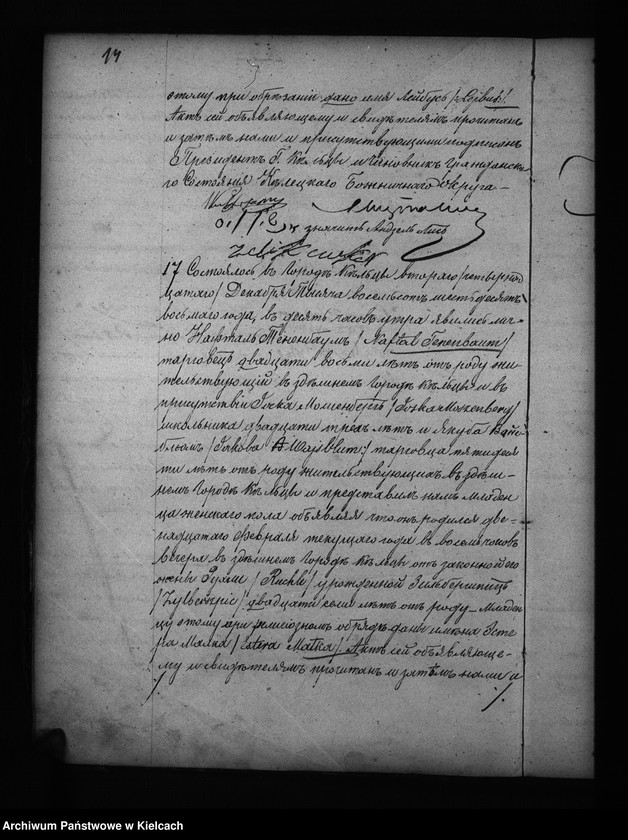 14
этому при обрѣзаніи дано имя Лейбусь / Lejbuś /.
Актъ сей объявляющему и свидѣтелямъ прочитанъ
и затѣмъ нами и присутствующими подписанъ
Президентъ Г. Кѣльцы и Чиновникъ Гражданска-
го Состоянія Кѣлецкаго Божничнаго Округа —
17 Состоялось въ Городѣ Кѣльцы втораго / четырнад
цатаго / Декабря Тысяча восемьсотъ шестьдесятъ
восьмаго года, въ десять часовъ утра явились лич-
но Нафталь Тененбаумъ / Naftal Tenenbaum /
торговецъ двадцати восьми лѣтъ отъ роду жи-
тельствующій въ здѣшнемъ Городѣ Кѣльцы и въ
присутствіи Іоска
школьника двадцати трехъ лѣтъ и Якуба Вайс
блюмъ / Jakóba Wajsblum / торговца пятидеся
ти лѣтъ отъ роду жительствующихъ въ здѣш-
немъ Городѣ Кѣльцы и представилъ намъ младен
ца женскаго пола объявляя что онъ родился две-
надцатаго Февраля текущаго года въ восемь часовъ
вечера въ здѣшнемъ Городѣ Кѣльцы отъ законной его
жены Рухли / Ruchli / урожденной Зильбершпицъ
двадцати семи лѣтъ отъ роду — Младен
цу этому при религіозномъ обрядѣ даны имена Эсте
ра Малка / Estera Małka /. Актъ сей объявляюще-
му и свидѣтелямъ прочитанъ и затѣмъ нами и
Archiwum Państwowe w Kielcach